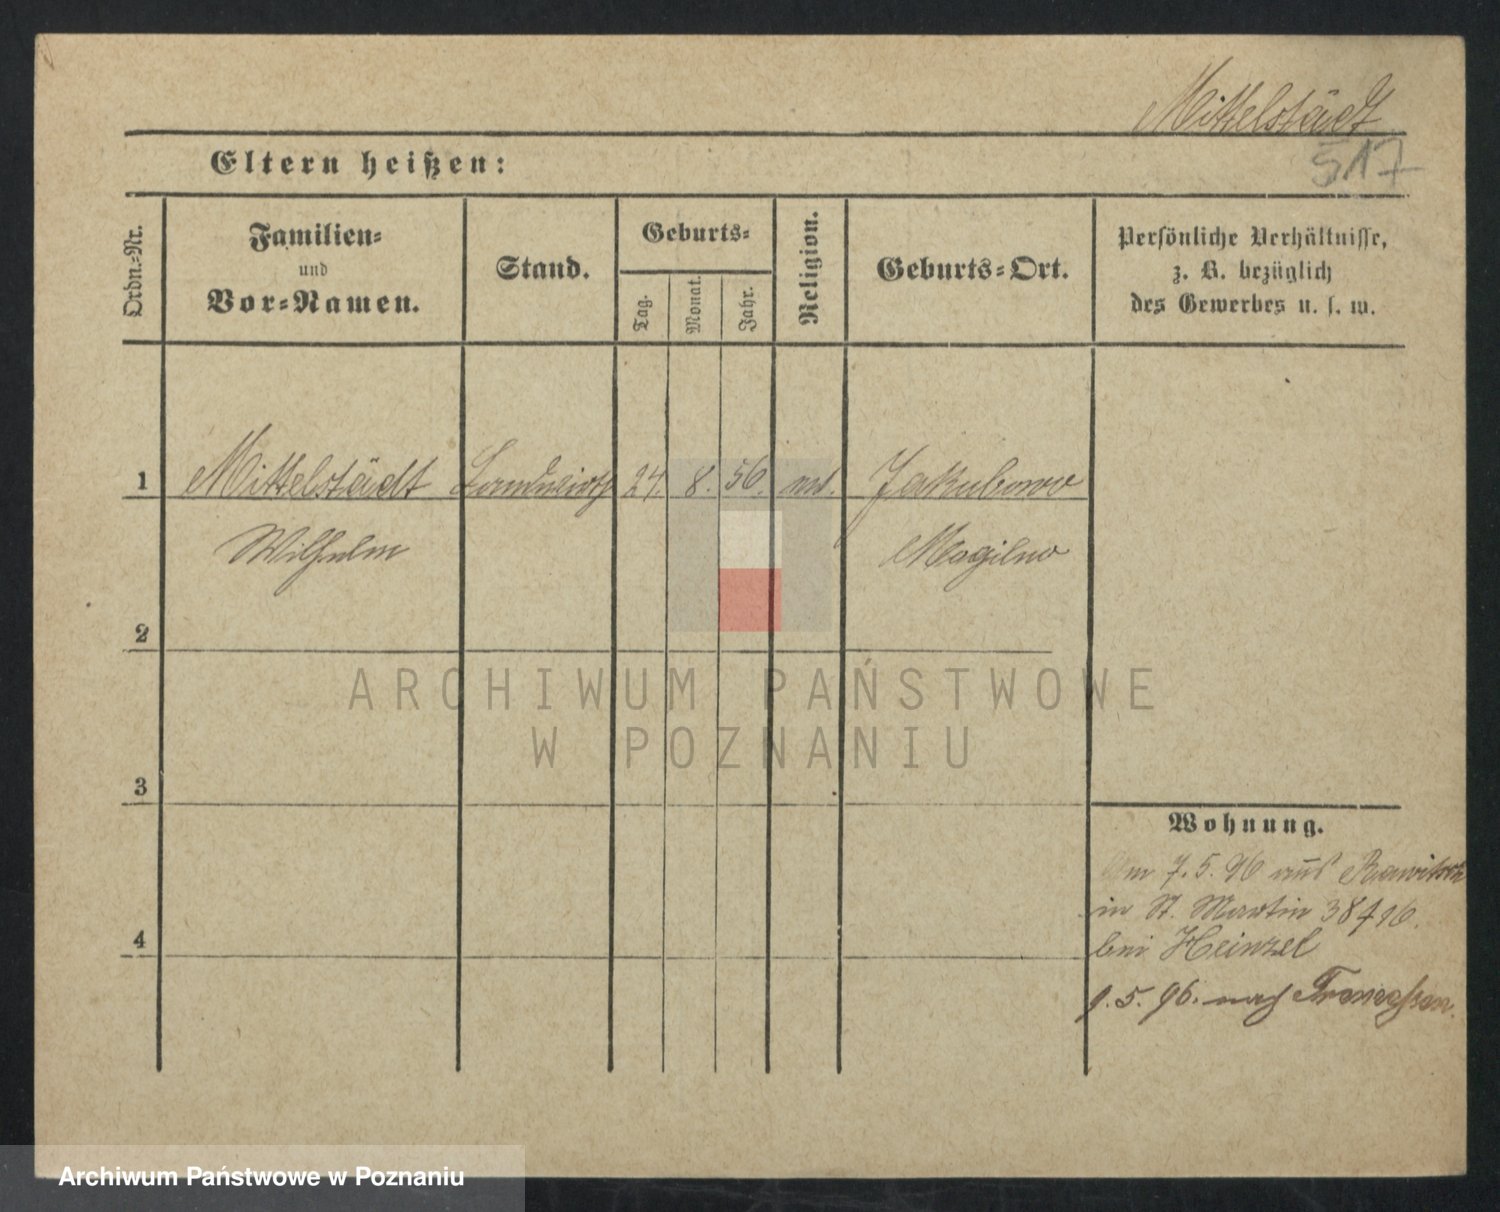 Mittelstädt
517
Eltern heißen:
Ordn.=Nr.
Familien=
und
Vor=Namen.
Stand.
Geburts=
Tag.
Monat.
Jahr.
Religion.
Geburts=Ort.
Persönliche Verhältnisse,
z. B. bezüglich
des Gewerbes u. s. w.
1 Mittelstädt Landwirth 24. 8. 56. Jakubowo
Wilhelm Mogilno
2
3
4
Wohnung.
Am 7.5.96 aus Rawitsch
in St. Martin 38
bei Heinzel
9.5.96. nach
ARCHIWUM PAŃSTWOWE
W POZNANIU
Archiwum Państwowe w Poznaniu